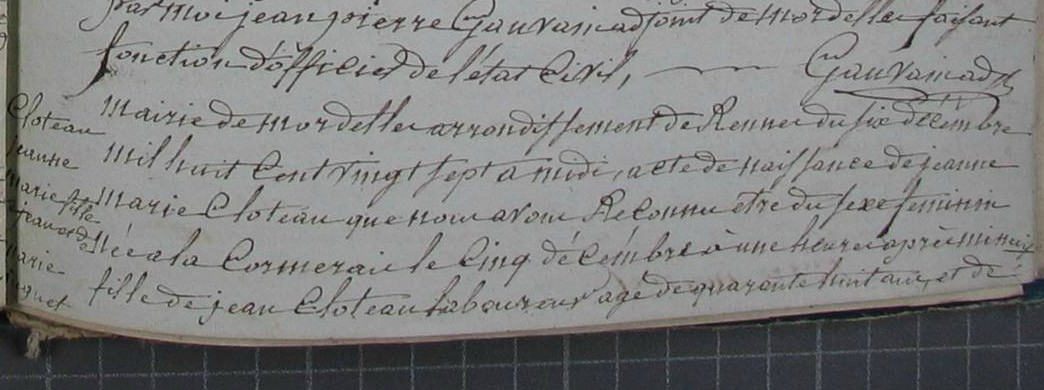 par moi jean pierre Gauvain adjoint de mordelles faisant
fonction d'officier de l'état Civil, Gauvain adt
Cloteau
jeanne
marie fille
jean et de
marie
mairie de mordelles arrondissement de Rennes du six décembre
mil huit Cent vingt sept a midi, acte de naissance de jeanne
marie Cloteau que nous avons Reconnu etre du sexe feminin
Née a la Cormeraie le Cinq décembre à une heure après minuit
fille de jean Cloteau Laboureur age de quarante huit ans, et de